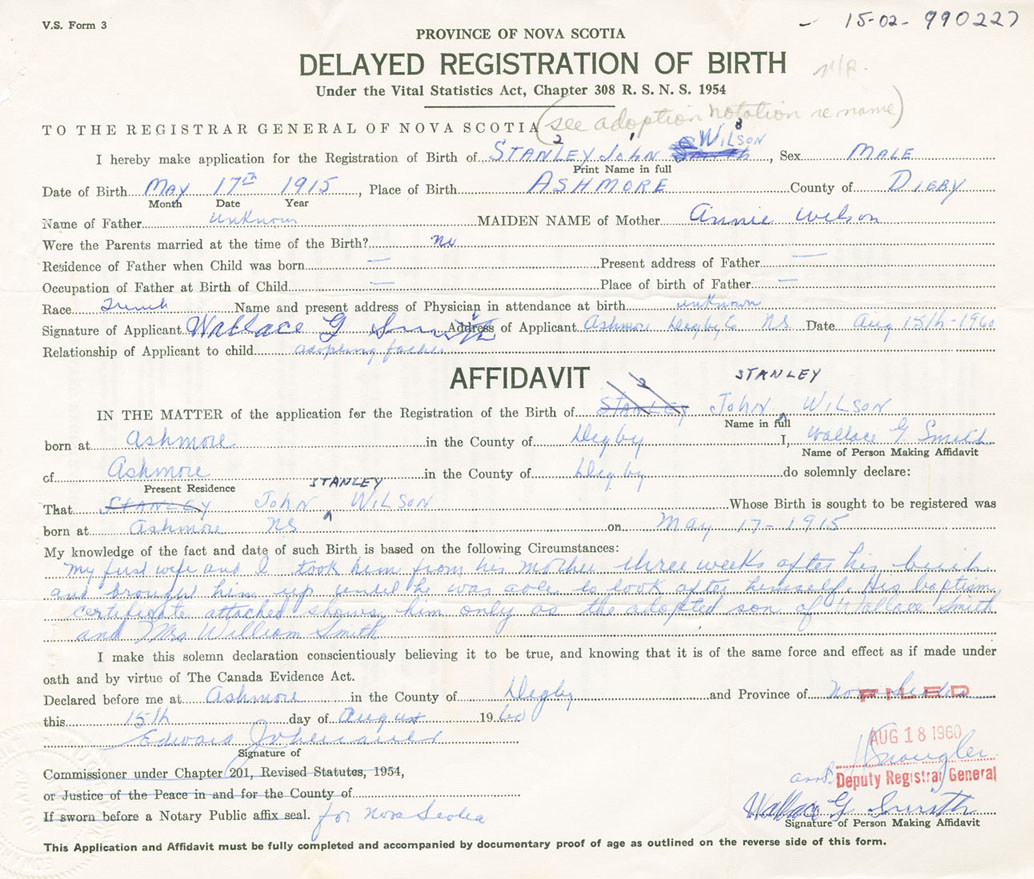 V.S. Form 3
15-02-990227
PROVINCE OF NOVA SCOTIA
DELAYED REGISTRATION OF BIRTH
Under the Vital Statistics Act, Chapter 308 R. S. N. S. 1954
(see adoption notation re name)
TO THE REGISTRAR GENERAL OF NOVA SCOTIA
I hereby make application for the Registration of Birth of STANLEY JOHN Smith WILSON, Sex MALE
2 1 3
Print Name in full
Date of Birth MAY 17TH 1915, Place of Birth ASHMORE County of DIGBY
Month Date Year
Name of Father unknown MAIDEN NAME of Mother Annie Wilson
Were the Parents married at the time of the Birth? no
Residence of Father when Child was born — Present address of Father —
Occupation of Father at Birth of Child — Place of birth of Father —
Race French Name and present address of Physician in attendance at birth unknown
Signature of Applicant Wallace G Smith Address of Applicant Ashmore Digby Co. NS Date Aug 15th-1960
Relationship of Applicant to child adopting father
AFFIDAVIT
STANLEY
IN THE MATTER of the application for the Registration of the Birth of STANLEY JOHN WILSON
Name in full
born at Ashmore in the County of Digby I, Wallace G Smith
Name of Person Making Affidavit
of Ashmore in the County of Digby do solemnly declare:
Present Residence
STANLEY
That STANLEY JOHN WILSON Whose Birth is sought to be registered was
born at Ashmore NS on May 17-1915
My knowledge of the fact and date of such Birth is based on the following Circumstances:
My first wife and I took him from his mother three weeks after his birth
and brought him up until he was able to look after himself. His baptism
certificate attached shows him only as the adopted son of Wallace Smith
and Mrs. William Smith
I make this solemn declaration conscientiously believing it to be true, and knowing that it is of the same force and effect as if made under
oath and by virtue of The Canada Evidence Act.
Declared before me at Ashmore in the County of Digby and Province of Nova Scotia
FILED
this 15th day of August 1960
AUG 18 1960
Edward
Signature of
Commissioner under Chapter 201, Revised Statutes, 1954,
Asst. Deputy Registrar General
or Justice of the Peace in and for the County of
If sworn before a Notary Public affix seal. for Nova Scotia
Wallace G Smith
Signature of Person Making Affidavit
This Application and Affidavit must be fully completed and accompanied by documentary proof of age as outlined on the reverse side of this form.